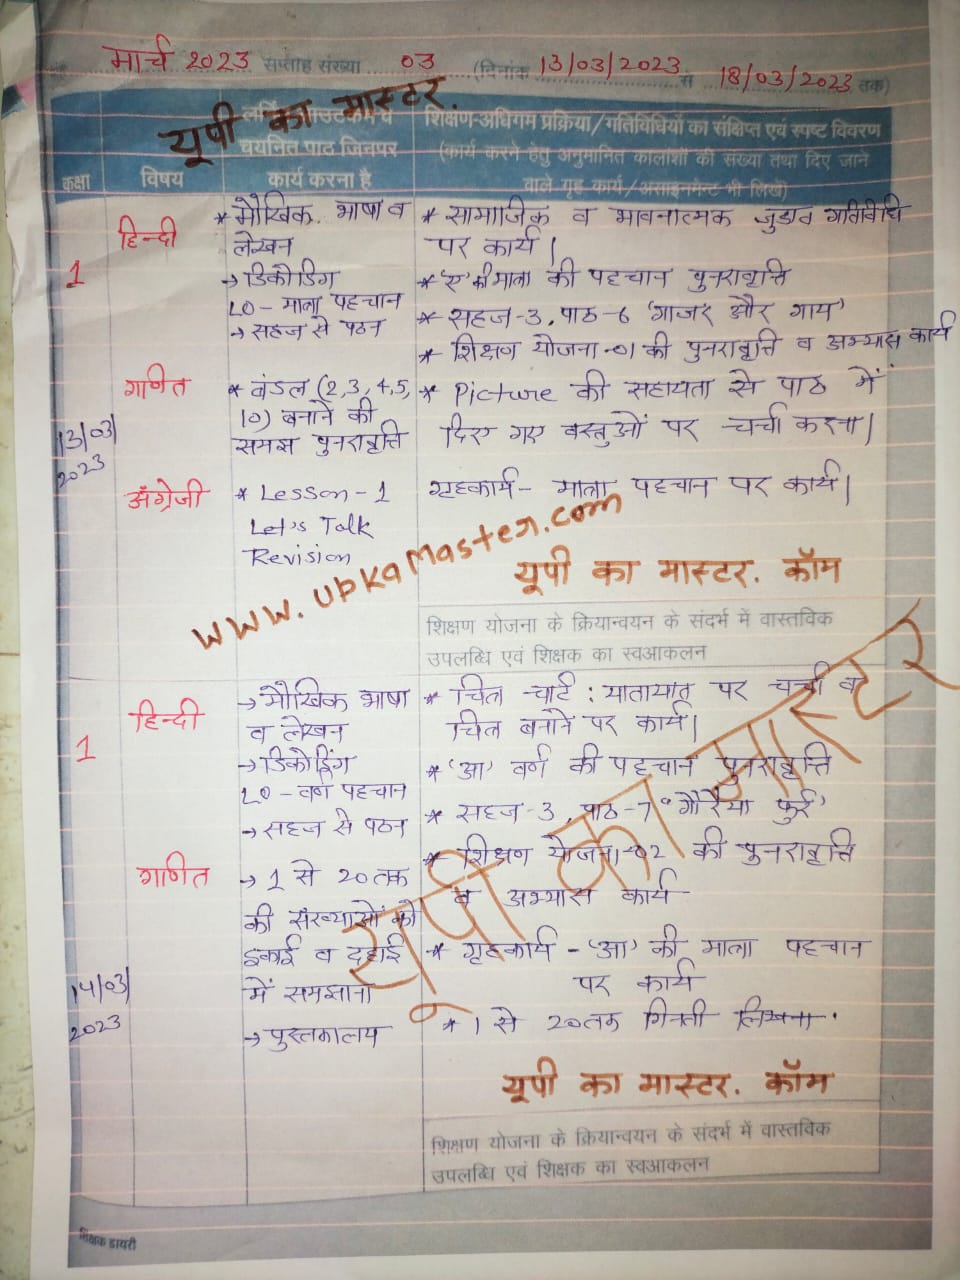 मार्च 2023 सप्ताह संख्या 03 (दिनांक 13/03/2023 से 18/03/2023 तक)
यूपी का मास्टर.
शिक्षण-अधिगम प्रक्रिया/गतिविधियों का संक्षिप्त एवं स्पष्ट विवरण
चयनित पाठ जिनपर (कार्य करने हेतु अनुमानित कालांशों की संख्या तथा दिए जाने
कक्षा विषय कार्य करना है वाले गृह कार्य/असाइनमेन्ट भी लिखें)
1 हिन्दी * मौखिक भाषा व लेखन
→ डिकोडिंग
LO - मात्रा पहचान
→ सहज से पठन
* सामाजिक व भावनात्मक जुडाव गतिविधि
पर कार्य।
* 'ए' की मात्रा की पहचान पुनरावृत्ति
* सहज-3, पाठ-6 'गाजर और गाय'
* शिक्षण योजना-01 की पुनरावृत्ति व अभ्यास कार्य
13/03/
2023
गणित * बंडल (2,3,4,5,
10) बनाने की
समझ पुनरावृत्ति
* Picture की सहायता से पाठ में
दिए गए वस्तुओं पर चर्चा करना।
अंग्रेजी * Lesson - 1
Let's Talk
Revision
गृहकार्य - मात्रा पहचान पर कार्य।
www.upkaMaster.com
यूपी का मास्टर. कॉम
शिक्षण योजना के क्रियान्वयन के संदर्भ में वास्तविक
उपलब्धि एवं शिक्षक का स्वआकलन
1 हिन्दी → मौखिक भाषा
व लेखन
→ डिकोडिंग
LO - वर्ण पहचान
→ सहज से पठन
* चित्र चार्ट : यातायात पर चर्चा व
चित्र बनाने पर कार्य।
* 'आ' वर्ण की पहचान पुनरावृत्ति
* सहज-3, पाठ-7 'गौरैया फुर्र'
* शिक्षण योजना-02 की पुनरावृत्ति
व अभ्यास कार्य
14/03/
2023
गणित → 1 से 20 तक
की संख्याओं को
इकाई व दहाई
में समझाना
→ पुस्तकालय
* गृहकार्य - 'आ' की मात्रा पहचान
पर कार्य
* 1 से 20 तक गिनती लिखना.
यूपी का मास्टर
यूपी का मास्टर. कॉम
शिक्षण योजना के क्रियान्वयन के संदर्भ में वास्तविक
उपलब्धि एवं शिक्षक का स्वआकलन
शिक्षक डायरी